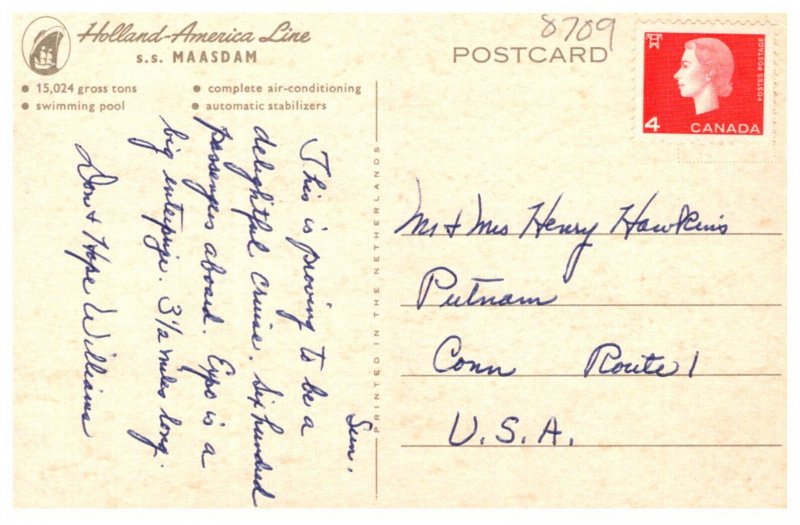 Holland-America Line
s.s. MAASDAM
● 15,024 gross tons
● swimming pool
● complete air-conditioning
● automatic stabilizers
8709
POSTCARD
4
CANADA
POSTES POSTAGE
Sun.
This is proving to be a
delightful cruise. Six hundred
passengers aboard. Expo is a
big enterprize. 3 1/2 miles long.
Don & Hope Williams
PRINTED IN THE NETHERLANDS
Mr & Mrs Henry Hawkins
Putnam
Conn Route 1
U.S.A.